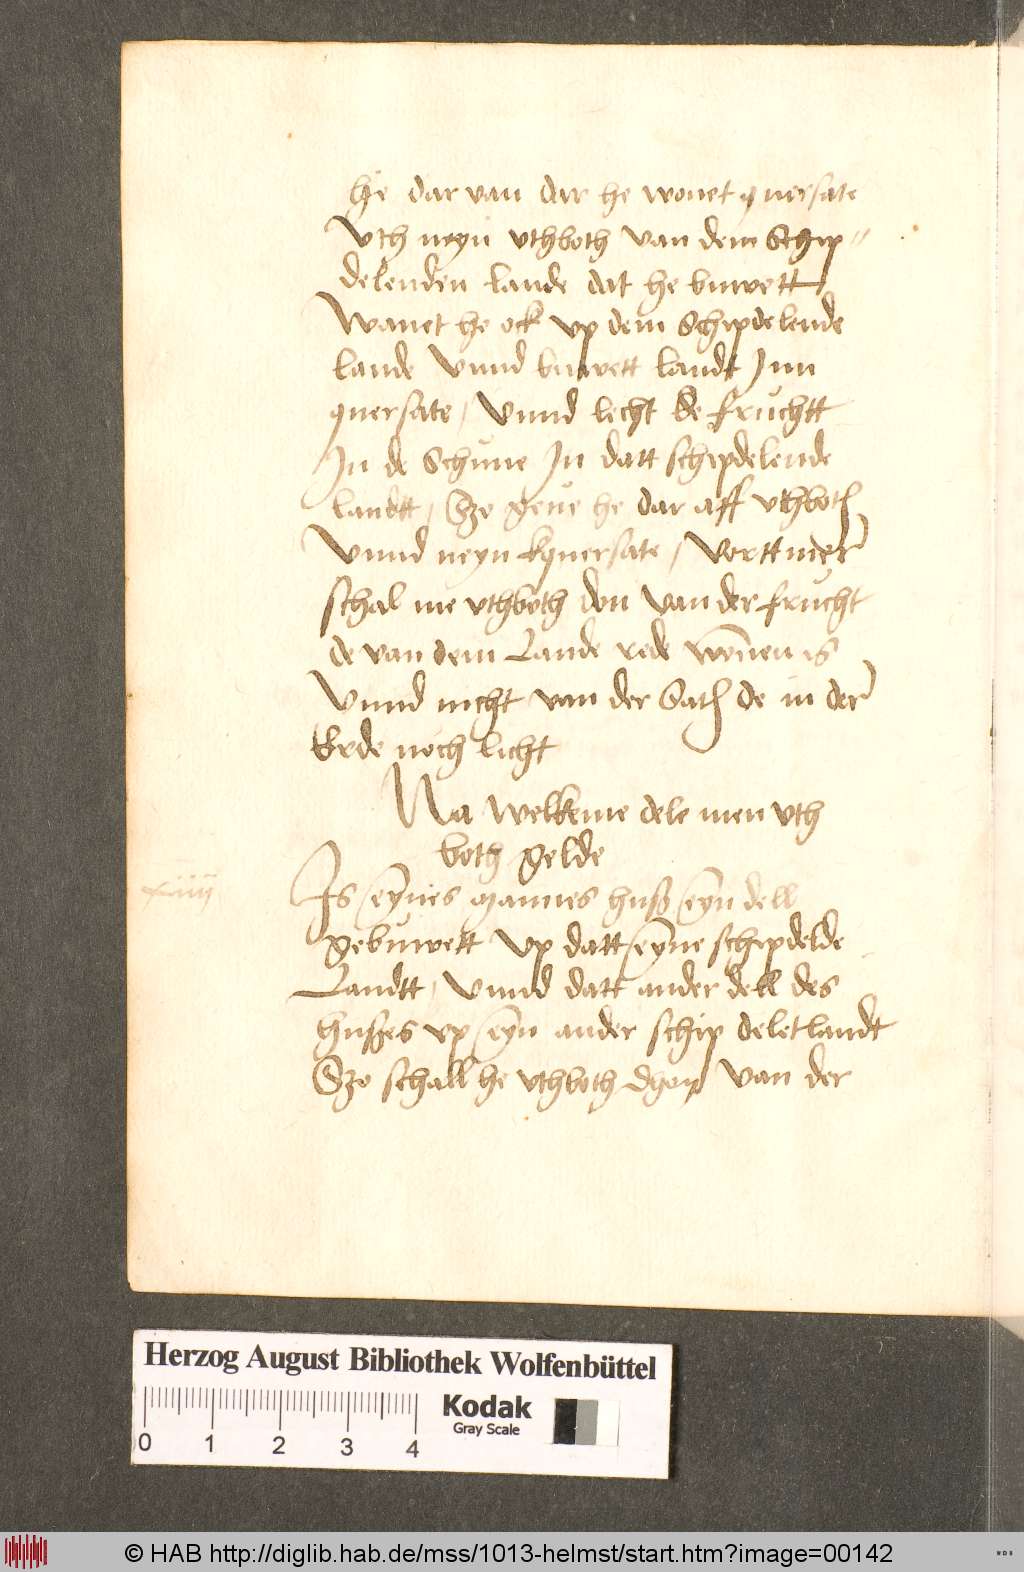 he dar van dar he wonet quersate
Vth neyn vthboth van dem Schip-
delenden lande dat he buwett
Wanet he ock vp dem Schipdelende
lande Vnnd buwett landt Jnn
quersate / Vnnd lecht de fruchtt
Jn de Schune Jn datt schipdelende
landtt / Sze geue he dar aff vthboth
Vnnd neyn kquersate / Vorttmer
schal me vthboth don van der frucht
de van dem Lande rede women is
Vnnd nicht van der Sath de in der
Erde noch licht
Na welkeme dele men vth
both gelde
Js eynes mannes huß eyn dell
gebuwett vp datt eyne schepdelde
Landtt / Vnnd datt ander dell des
hußes vp eyn ander schip deletlandt
Sze schall he vthboth dhon van der
Herzog August Bibliothek Wolfenbüttel
Kodak
Gray Scale
0 1 2 3 4
© HAB http://diglib.hab.de/mss/1013-helmst/start.htm?image=00142